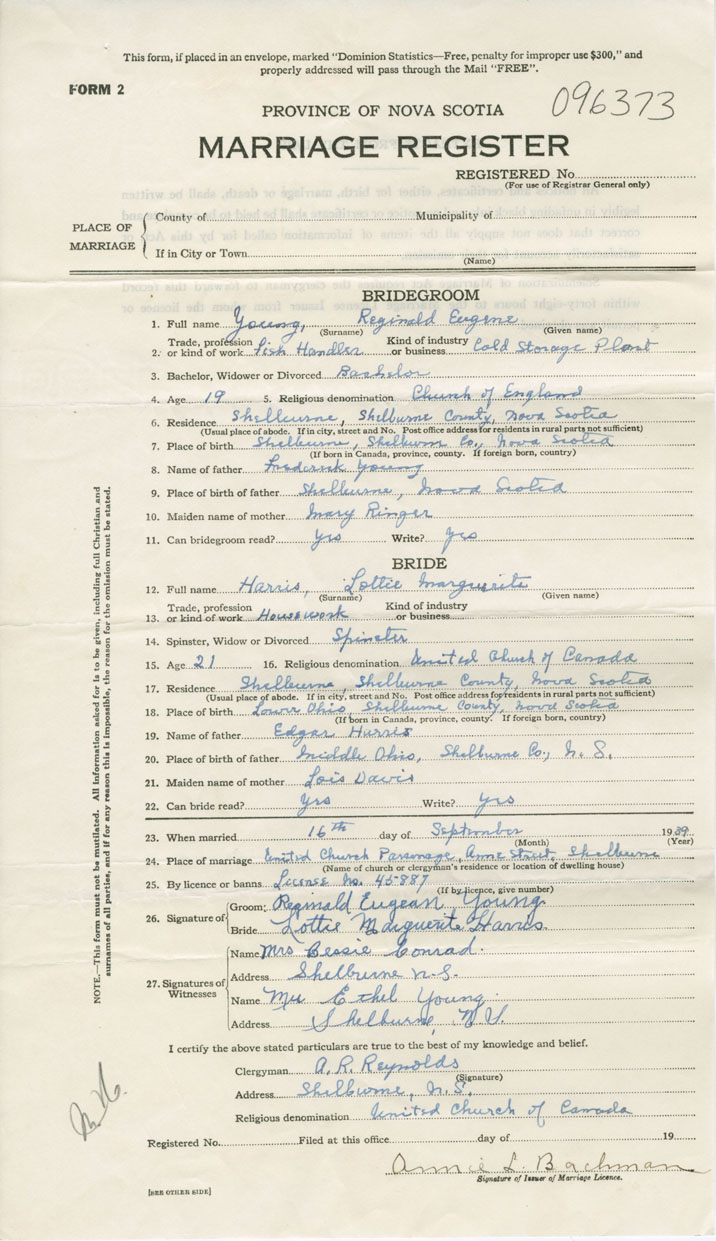 This form, if placed in an envelope, marked "Dominion Statistics—Free, penalty for improper use $300," and
properly addressed will pass through the Mail "FREE".
FORM 2
096373
PROVINCE OF NOVA SCOTIA
MARRIAGE REGISTER
REGISTERED No.
(For use of Registrar General only)
PLACE OF MARRIAGE
County of Municipality of
If in City or Town
(Name)
BRIDEGROOM
1. Full name Young, Reginald Eugene
(Surname) (Given name)
Trade, profession Kind of industry
2. or kind of work Fish Handler or business Cold Storage Plant
3. Bachelor, Widower or Divorced Bachelor
4. Age 19 5. Religious denomination Church of England
6. Residence Shelburne, Shelburne County, Nova Scotia
(Usual place of abode. If in city, street and No. Post office address for residents in rural parts not sufficient)
7. Place of birth Shelburne, Shelburne Co., Nova Scotia
(If born in Canada, province, county. If foreign born, country)
8. Name of father Frederick Young
9. Place of birth of father Shelburne, Nova Scotia
10. Maiden name of mother Mary Ringer
11. Can bridegroom read? Yes Write? Yes
BRIDE
12. Full name Harris, Lottie Marguerite
(Surname) (Given name)
Trade, profession Kind of industry
13. or kind of work Housework or business
14. Spinster, Widow or Divorced Spinster
15. Age 21 16. Religious denomination United Church of Canada
17. Residence Shelburne, Shelburne County, Nova Scotia
(Usual place of abode. If in city, street and No. Post office address for residents in rural parts not sufficient)
18. Place of birth Lower Ohio, Shelburne County, Nova Scotia
(If born in Canada, province, county. If foreign born, country)
19. Name of father Edgar Harris
20. Place of birth of father Middle Ohio, Shelburne Co., N. S.
21. Maiden name of mother Lois Davis
22. Can bride read? Yes Write? Yes
23. When married 16th day of September 1939
(Month) (Year)
24. Place of marriage United Church Parsonage, Anne Street, Shelburne
(Name of church or clergyman's residence or location of dwelling house)
25. By licence or banns License No. 45887
(If by licence, give number)
26. Signature of
Groom: Reginald Eugean Young
Bride Lottie Marguerite Harris.
27. Signatures of Witnesses
Name Mrs Bessie Conrad.
Address Shelburne N.S.
Name Mrs Ethel Young
Address Shelburne, N.S.
I certify the above stated particulars are true to the best of my knowledge and belief.
Clergyman A. R. Reynolds
(Signature)
Address Shelburne, N.S.
Religious denomination United Church of Canada
Registered No. Filed at this office day of 19
Annie L. Bachman
Signature of Issuer of Marriage Licence.
[SEE OTHER SIDE]
NOTE.—This form must not be mutilated. All information asked for is to be given, including full Christian and
surnames of all parties, and if for any reason this is impossible, the reason for the omission must be stated.